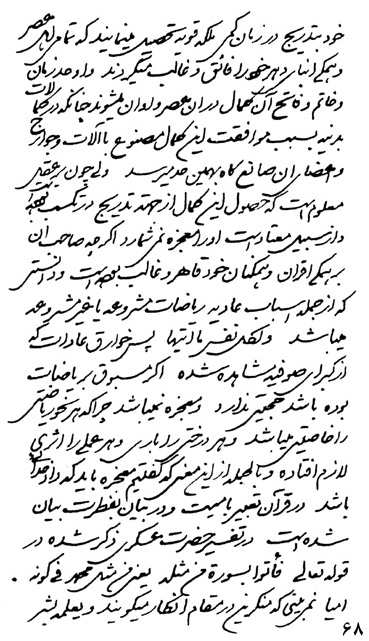 خود بتدریج در زمان کمی ملکه قویه تحصیل مینمایند که تمام اهل عصر
و همگی ابنای دهر خود را فائق و غالب میگردند و اوحد زمان
و خاتم و فاتح آن کمال در آن عصر و اوان میشوند چنانکه در کمالات
بدنیه بسبب موافقت این کمال مصنوع با آلات و جوارح
و اعضا ان صانع گاه بهمین حد میرسد ولی چون بر عقل
معلوم است که حصول این کمال از جهة تدریج در تکسب
و از سبیل معتاد است او را معجزه نمیشمارد اگرچه صاحب ان
بر همگی اقران و همگنان خود قاهر و غالب بوده است و دانستی
که از جمله اسباب عادیه ریاضات مشروعه یا غیر مشروعه
میباشد و لکل نفس ما آتیها پس خوارق عادات که
از کبرای صوفیه مشاهده شده اگر مسبوق بریاضات
بوده باشد حجیتی ندارد و معجزه نمیباشد چرا که هر نحو ریاضتی
را خاصیتی میباشد و هر درختی را باری و هر عملی را اثری
لازم افتاده و بالجمله از این معنی که گفتیم معجزه باید که
باشد در قرآن تعبیر و در بیان بفطرت بیان
شده است در تفسیر حضرت عسکری ذکر شده در
قوله تعالی فأتوا بسورة من مثله یعنی من مثل محمد فی کونه
امیا نمی بینی که منکرین در مقام انکار میگویند و یعلمه بشر
۶۸